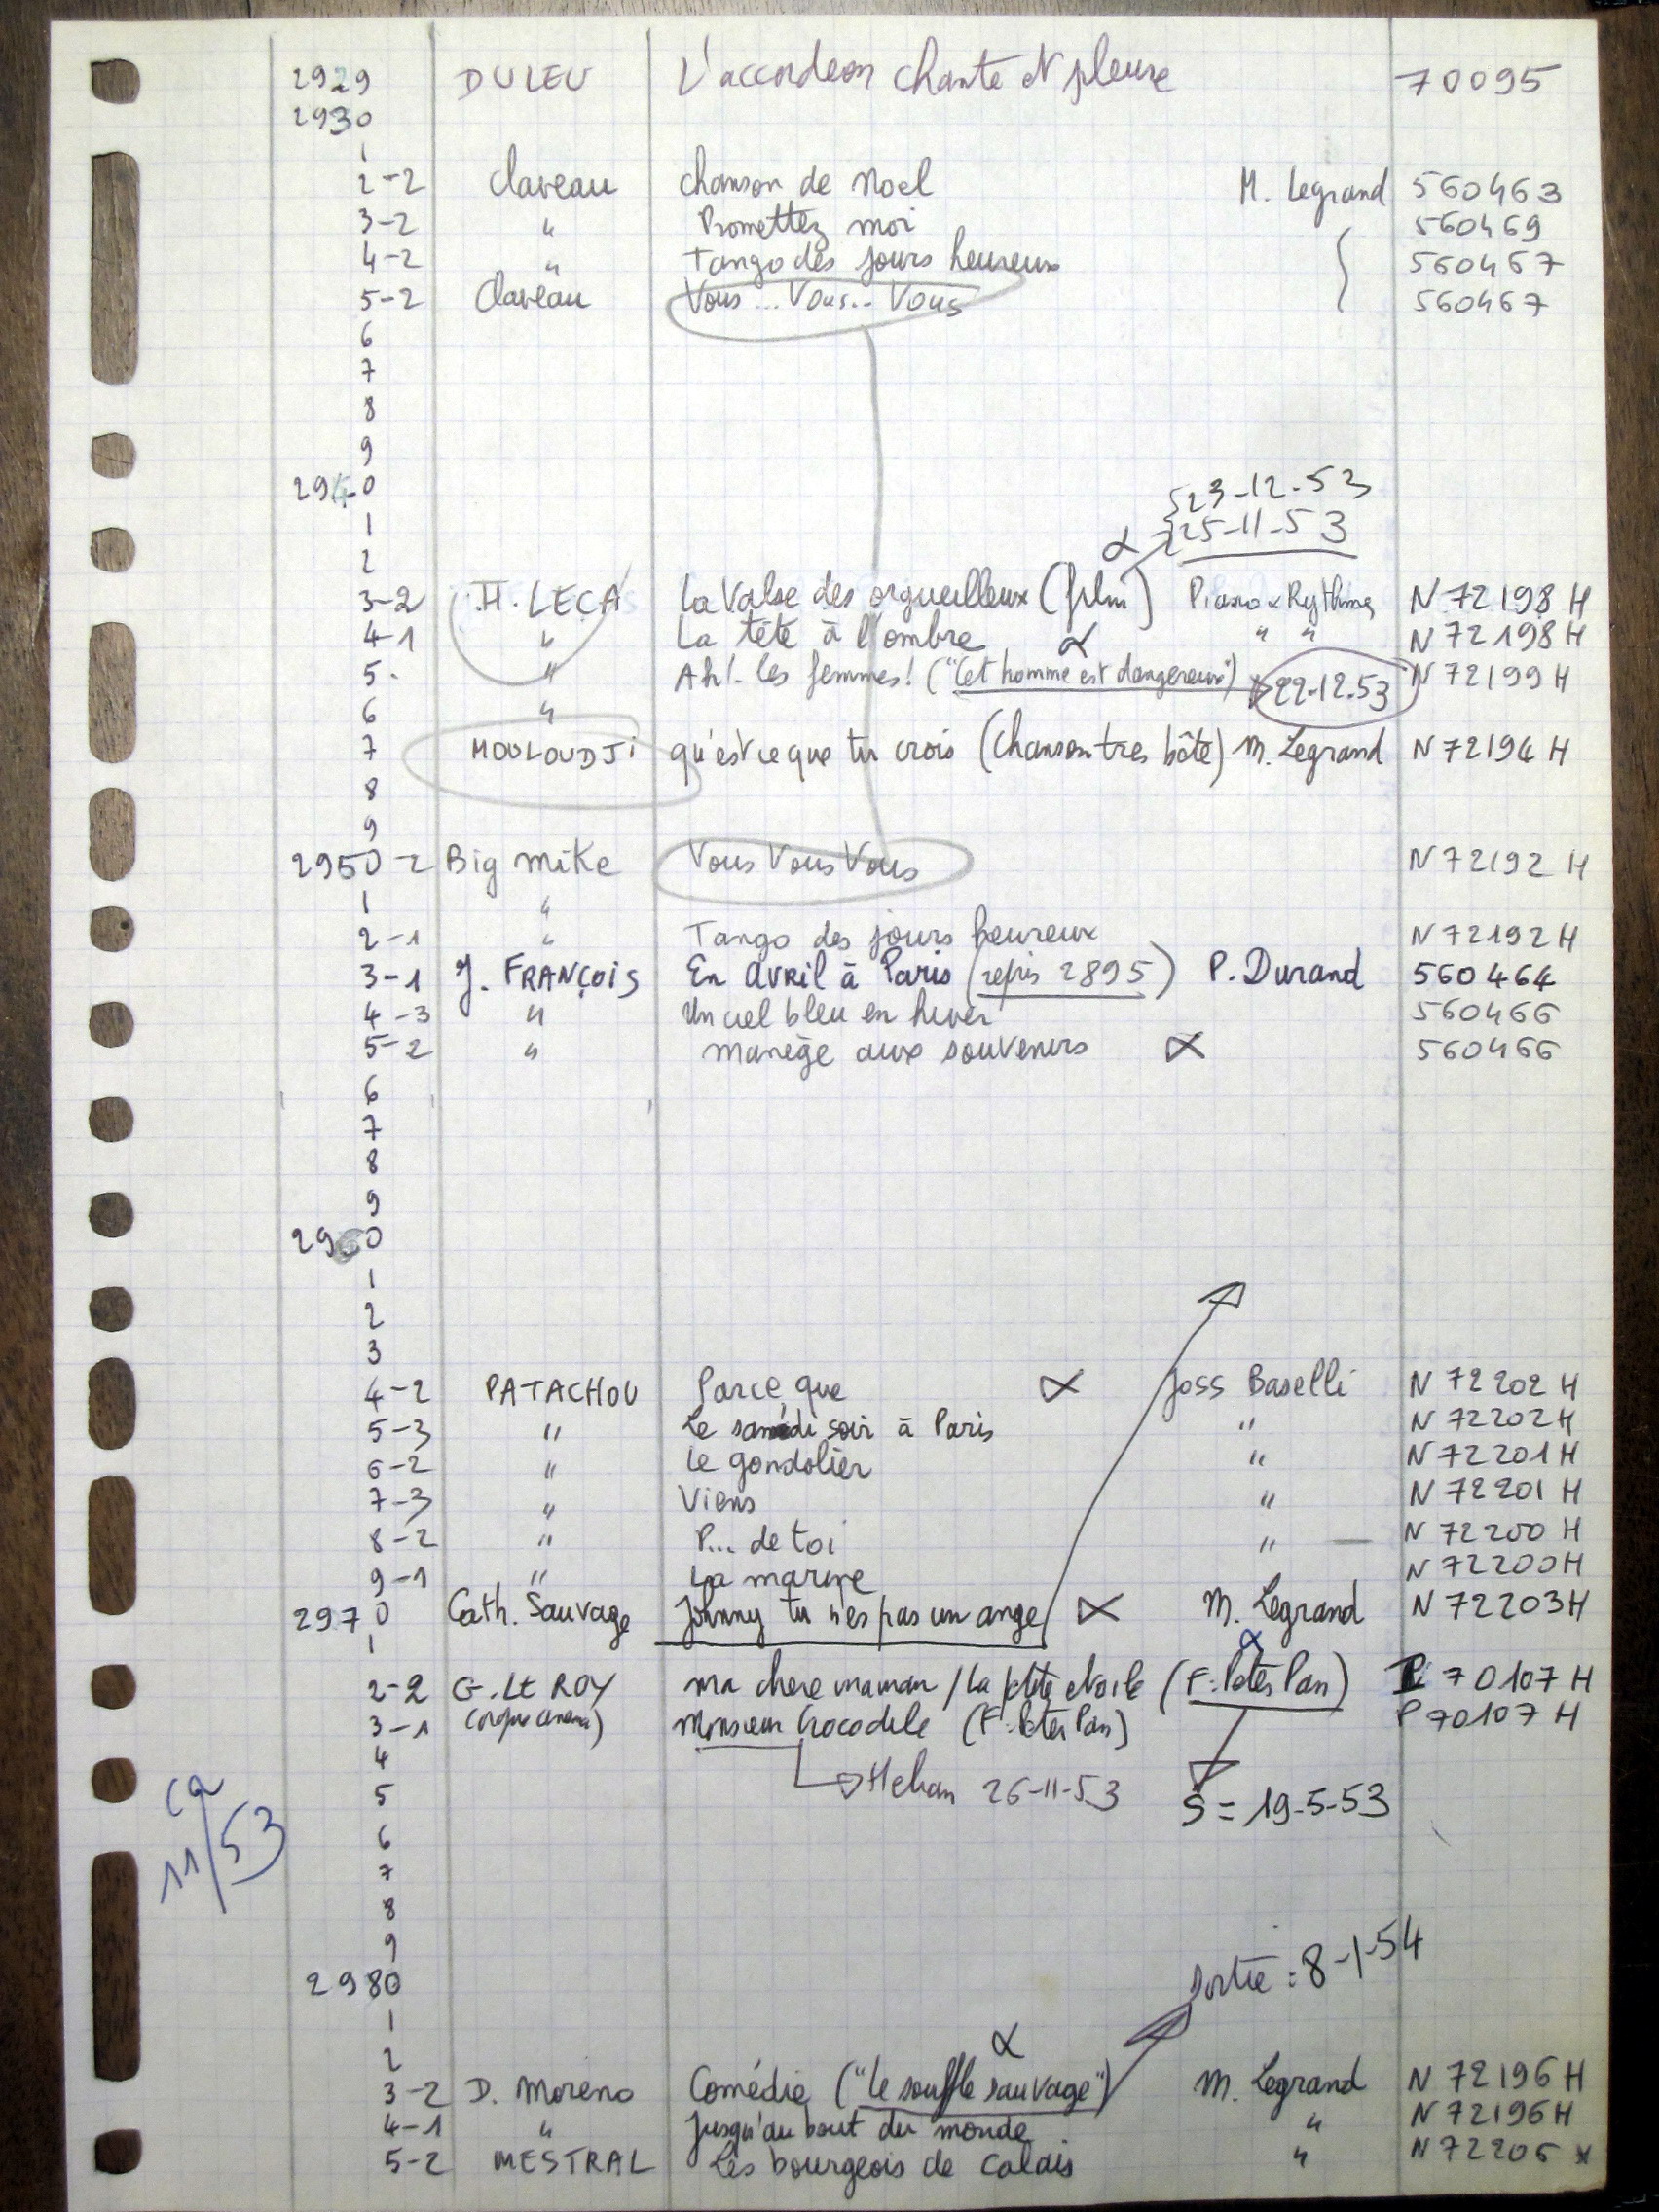 2929 DULEU L'accordeon chante et pleure 70095
2930
1
2-2 Claveau chanson de Noel M. Legrand 560463
3-2 " Promettez moi 560469
4-2 " Tango des jours heureux 560467
5-2 Claveau Vous... Vous... Vous 560467
6
7
8
9
2940
23-12-53
1 25-11-53
2 α
3-2 H. LECA La Valse des orgueilleux (film) Piano & Rythmes N 72198 H
4-1 " La tête à l'ombre α " " N 72198 H
5. " Ah!. les femmes! ("Cet homme est dangereux") 22-12.53 N 72199 H
6 "
7 MOULOUDJi qu'est ce que tu crois (chanson tres bête) M. Legrand N 72194 H
8
9
2950-2 Big Mike Vous Vous Vous N 72192 H
1 "
2-1 " Tango des jours heureux N 72192 H
3-1 J. FRANÇOIS En avril à Paris (repis 2895) P. Durand 560464
4-3 " Un ciel bleu en hiver 560466
5-2 " manège aux souvenirs α 560466
6
7
8
9
2960
1
2
3
4-2 PATACHOU Parce que α Joss Baselli N 72202 H
5-3 " Le samedi soir à Paris " N 72202 H
6-2 " Le gondolier " N 72201 H
7-3 " Viens " N 72201 H
8-2 " P... de toi " — N 72200 H
9-1 " La marine N 72200 H
2970 Cath. Sauvage Johnny tu n'es pas un ange α M. Legrand N 72203 H
1 α
2-2 G. LE ROY ma chere maman / La ptite etoile (F: Peter Pan) P 70107 H
3-1 Monsieur Crocodile (F: Peter Pan) P 70107 H
4
5 26-11-53 S = 19-5-53
ca
11/53
6
7
8
9
2980 sortie : 8-1-54
1
2 α
3-2 D. Moreno Comédie ("le souffle sauvage") M. Legrand N 72196 H
4-1 " Jusqu'au bout du monde " N 72196 H
5-2 MESTRAL Les bourgeois de Calais " N 72206 *